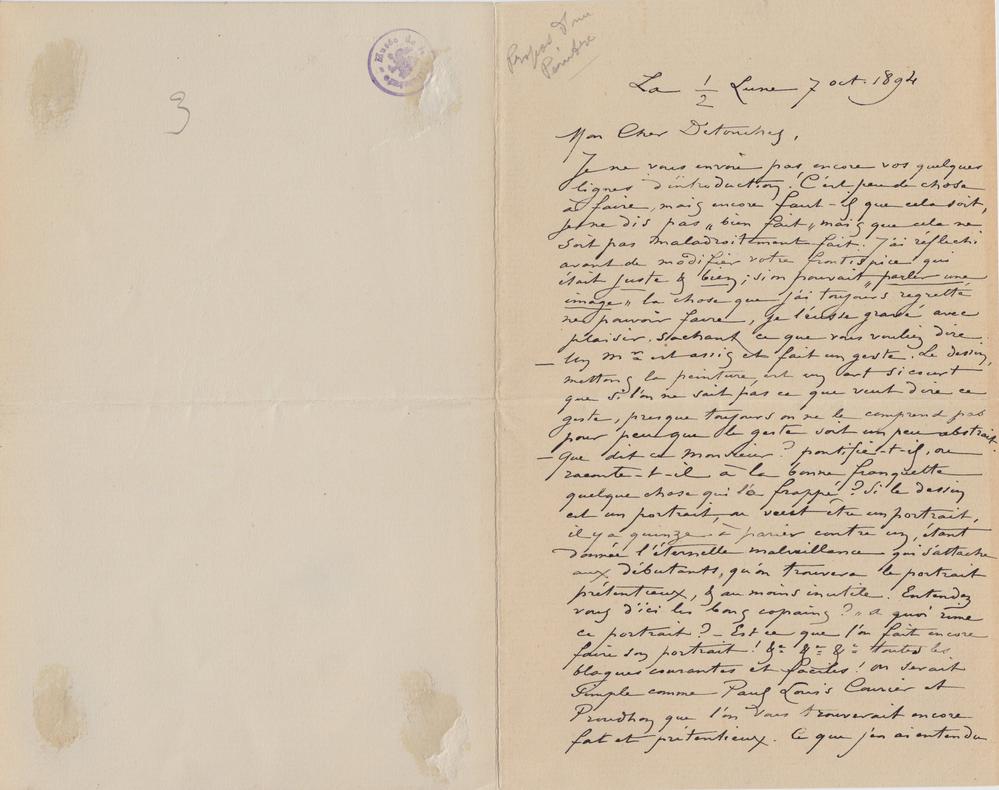 3
Musée de la
Propos d'un
Peintre
La 1/2 Lune 7 oct. 1894
Mon Cher Detouches,
Je ne vous envoie pas encore vos quelques
lignes d'introduction. C'est peu de chose
à faire, mais encore faut-il que cela soit,
je ne dis pas „bien fait„ mais que cela ne
soit pas maladroitement fait. J'ai réfléchi
avant de modifier votre frontispice qui
était juste & bien; si on pouvait „parler une
image„ la chose que j'ai toujours regretté
ne pouvoir faire, je l'eusse gravé avec
plaisir. Sachant ce que vous vouliez dire.
— Un Mr est assis et fait un geste. Le dessin,
mettons la peinture, est un art si court
que si l'on ne sait pas ce que veut dire ce
geste, presque toujours on ne le comprend pas
pour peu que le geste soit un peu abstrait.
— Que dit ce Monsieur? pontifie-t-il, ou
raconte-t-il à la bonne franquette
quelque chose qui l'a frappé? Si le dessin
est un portrait, ou veut être un portrait,
il y a quinze à parier contre un, étant
donnée l'éternelle malveillance qui s'attache
aux débutants, qu'on trouvera le portrait
prétentieux, & au moins inutile. Entendez
vous d'ici les bons copains? „ a quoi rime
ce portrait? — Est ce que l'on fait encore
faire son portrait! &a &a &a toutes les
blagues courantes et faciles! on serait
simple comme Paul Louis Courier et
Proudhon que l'on vous trouverait encore
fat et prétentieux. Ce que j'en ai entendu